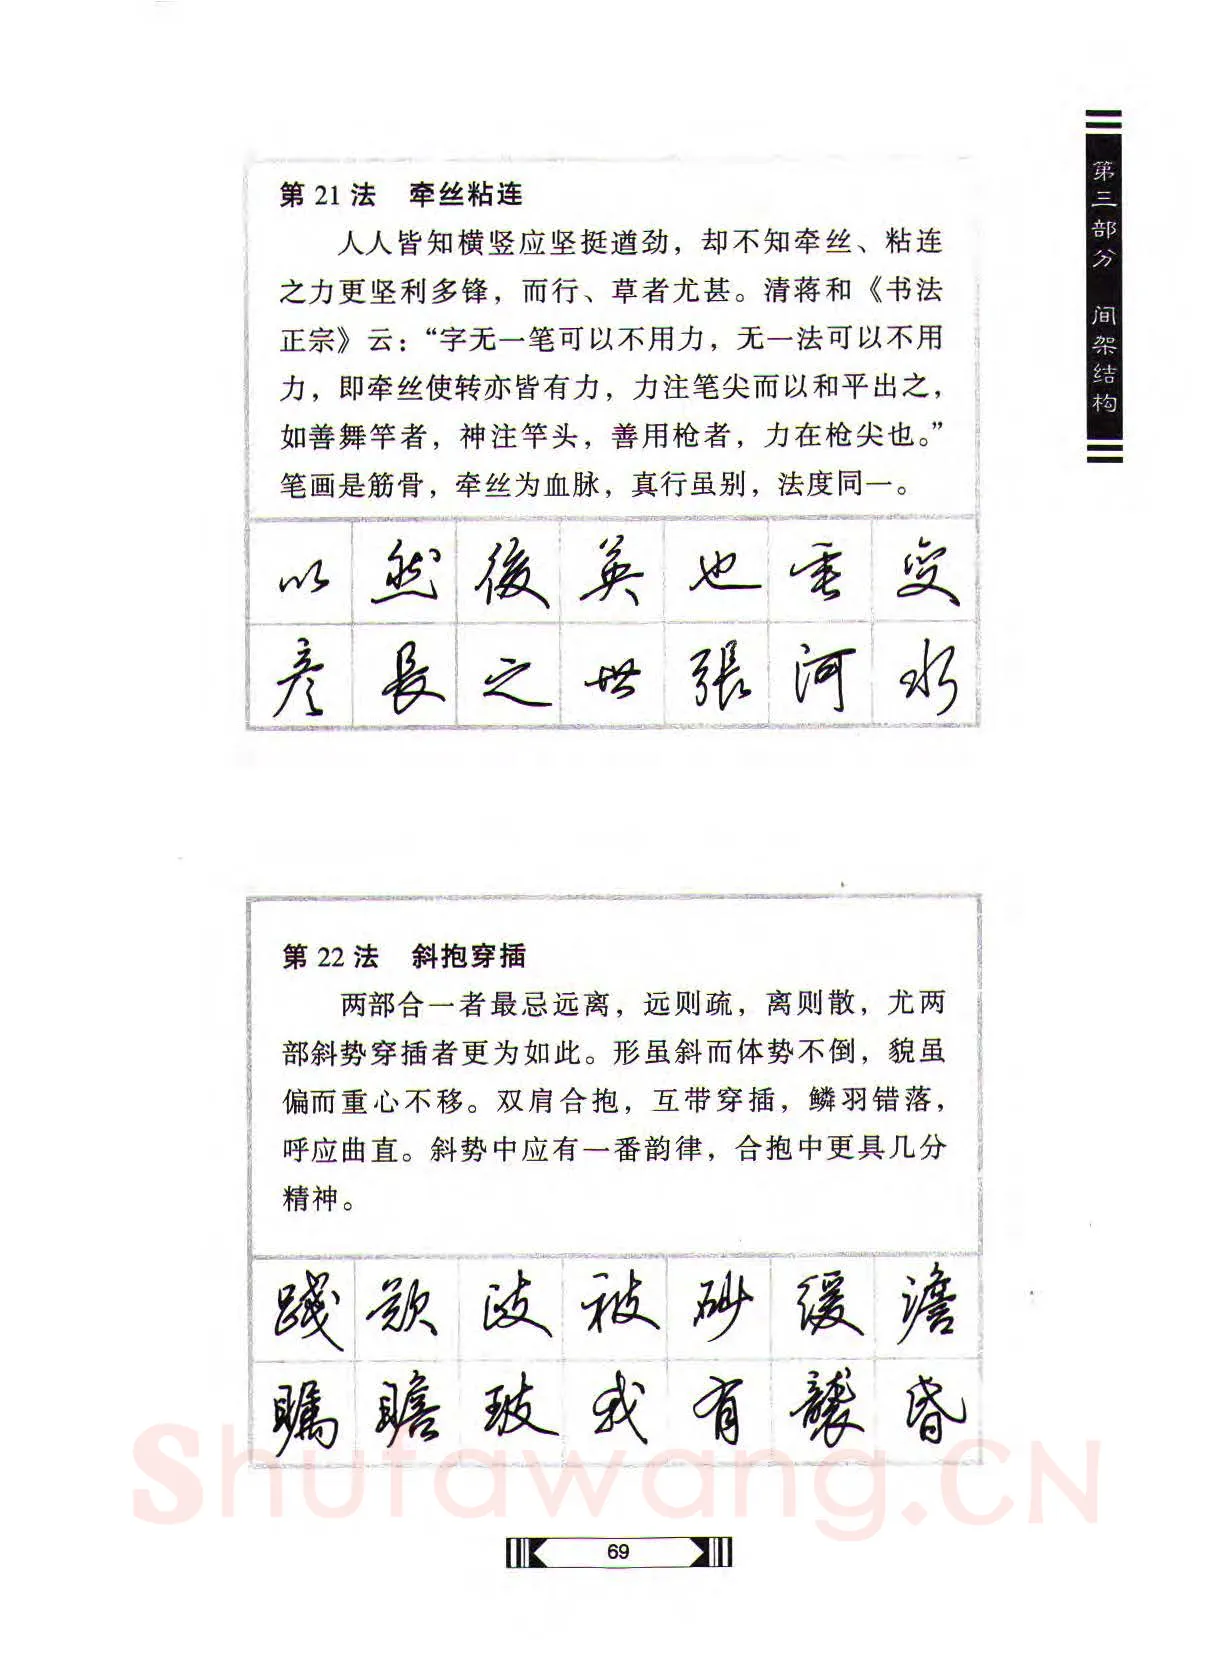 第三部分 间架结构
第 21 法 牵丝粘连
人人皆知横竖应坚挺遒劲，却不知牵丝、粘连
之力更坚利多锋，而行、草者尤甚。清蒋和《书法
正宗》云：“字无一笔可以不用力，无一法可以不用
力，即牵丝使转亦皆有力，力注笔尖而以和平出之，
如善舞竿者，神注竿头，善用枪者，力在枪尖也。”
笔画是筋骨，牵丝为血脉，真行虽别，法度同一。
以 然 後 英 也 垂 变
彦 長 之 世 張 河 水
第 22 法 斜抱穿插
两部合一者最忌远离，远则疏，离则散，尤两
部斜势穿插者更为如此。形虽斜而体势不倒，貌虽
偏而重心不移。双肩合抱，互带穿插，鳞羽错落，
呼应曲直。斜势中应有一番韵律，合抱中更具几分
精神。
踐 歌 歧 被 砂 缓 澹
瞩 瞻 玻 我 有 襲 昏
Shufawang.CN
69